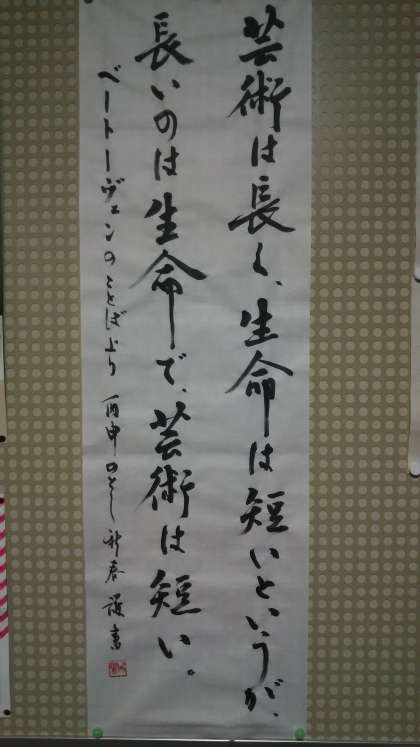 芸術は長く、生命は短いというが、
長いのは生命で、芸術は短い。
ベートーヴェンのことばより 丙申のとし新春 護書